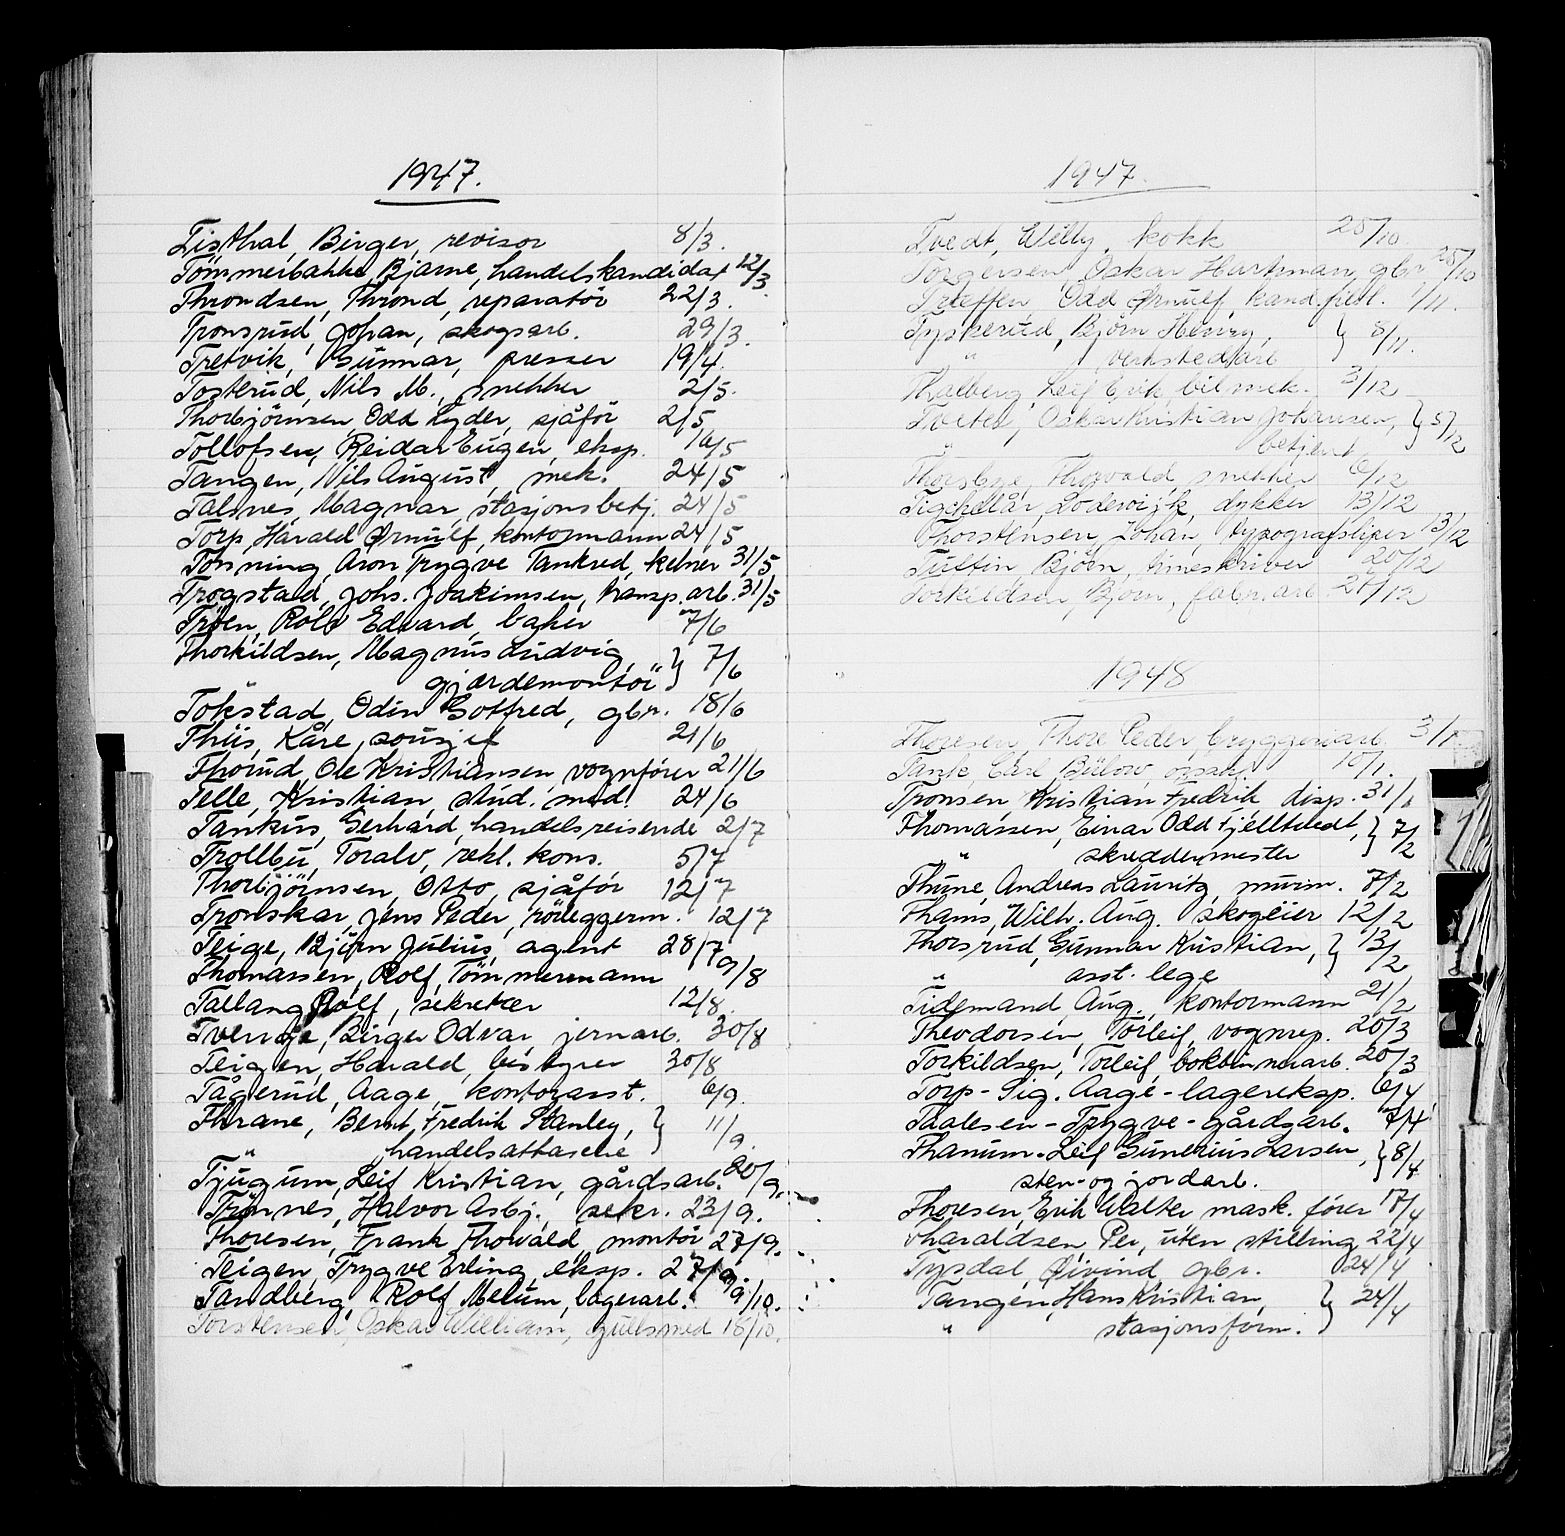 1947.
Tisthal, Birger, revisor 8/3.
Tømmerbakke, Bjarne, handelskandidat 12/3.
Throndsen, Thrond, reparatör 22/3.
Tronsrud, Johan, skogsarb. 29/3.
Tretvik, Gunnar, presser 19/4.
Tosterud, Nils M., snekker 2/5.
Thorbjörnsen, Odd Lyder, sjåför 2/5
Tollofsen, Reidar Eugen, eksp. 16/5
Tangen, Nils August, mek. 24/5
Talnes, Magnar, stasjonsbetj. 24/5
Torp, Harald Ørnulf, kontormann 24/5
Tønning, Aron Trygve Tankred, kelner 31/5
Trøgstad, Johs. Joakimsen, transp. arb. 31/5
Trøen, Rolf Edvard, baker 7/6
Thorkildsen, Magnus Ludvig, } 7/6
" gjærdemontör
Tokstad, Odin Gotfred, gbr. 18/6
Thiis, Kåre, sousjef 21/6
Thorud, Ole Kristiansen, vognfører 21/6
Telle, Kristian, stud. med. 24/6
Tankus, Gerhard, handelsreisende 2/7
Trollbu, Toralv, rekl. kons. 5/7
Thorbjörnsen, Otto, sjåför 12/7
Tronskar, Jens Peder, röreggerm. 12/7
Teige, Björn Julius, agent 28/7
Thomassen, Rolf, Tömmermann 9/8
Tallang, Rolf, sekretær 12/8.
Tvenge, Birger Odvar, jernarb. 30/8
Teigen, Harald, bestyrer 30/8
Tågerud, Aage, kontorasst. 6/9.
Thrane, Bernt Fredrik Stanley, } 11/9.
" handelsattasche
Tjugum, Leif Kristian, gårdsarb. 20/9.
Trönnes, Halvor Asbj. sekr. 23/9.
Thoresen, Frank Thorvald, montör 27/9.
Teigen, Trygve Erling, eksp. 27/9.
Tandberg, Rolf Melum, lagerarb. 9/10.
Torstensen, Oskar William, gullsmed 18/10.
1947.
Tvedt, Willy, kokk 25/10.
Torgersen, Oskar Hartman, gbr. 25/10
Treffen, Odd Ørnulf, kand. fil. 1/11.
Tyskerud, Bjørn Henry, } 8/11.
" verkstedarb
Thalberg, Leif Erik, bilmek. 3/12
Tveter, Oskar Kristian Johansen, } 5/12
" betjent
Thorsbye, Thorvald snekker 6/12
Tigchelår, Lodewijk, dykker 13/12
Thorstensen, Johan, typografsliper 13/12
Tuftin, Björn, timeskriver 20/12
Torkildsen, Bjørn, fabr. arb. 27/12
1948
Thoresen, Thore Peder, bryggeriarb. 3/1
Tank, Carl Bülow, 10/1.
Tronsen Kristian Fredrik disp. 31/1
Thomassen, Einar Odd Fjelltvedt, } 7/2
" skreddermester
Thune, Andreas Lauritz, murm. 7/2
Thams, Wilh. Aug. skogeier 12/2
Thorsrud, Gunnar Kristian, } 13/2
" asst. lege
Tidemand, Aug., kontormann 21/2
Theodorsen, Torleif, vognrep. 20/3
Torkildsen, Torleif bokbinnerarb. 20/3
Torp - Sig. Aage - lagereksp. 6/4
Thalesen - Trygve - gårdsarb. 7/4
Thanum - Leif Gunerius Larsen, } 8/4
sten- og jordarb.
Thoresen, Erik Walter mask. fører 17/4
Tharaldsen, Per, uten stilling 22/4
Tysdal, Øivind, gbr. 24/4
Tangen, Hans Kristian, } 24/4
" stasjonsform.